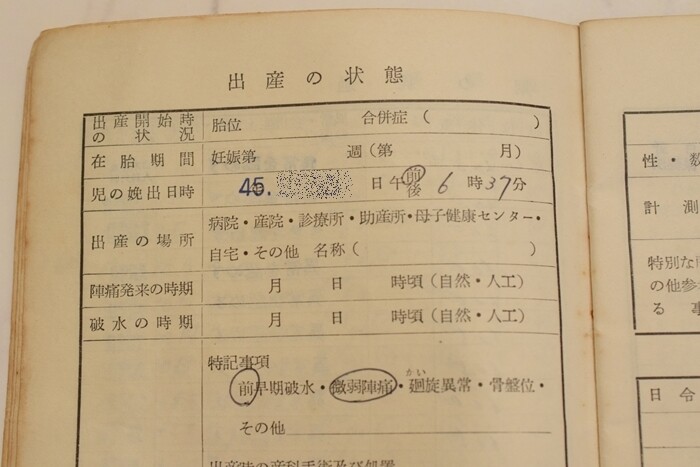 出産の状態
出産開始時の状況 胎位 合併症（ ）
在胎期間 妊娠第 週（第 月）
児の娩出日時 45. 日 午前後 6 時 37 分
出産の場所 病院・産院・診療所・助産所・母子健康センター・
自宅・その他 名称（ ）
陣痛発来の時期 月 日 時頃（自然・人工）
破水の時期 月 日 時頃（自然・人工）
特記事項
前早期破水・微弱陣痛・廻旋異常・骨盤位・
かい
その他
出産時の産科手術及び処置
性・数
計測
特別な
の他参
る事
日令